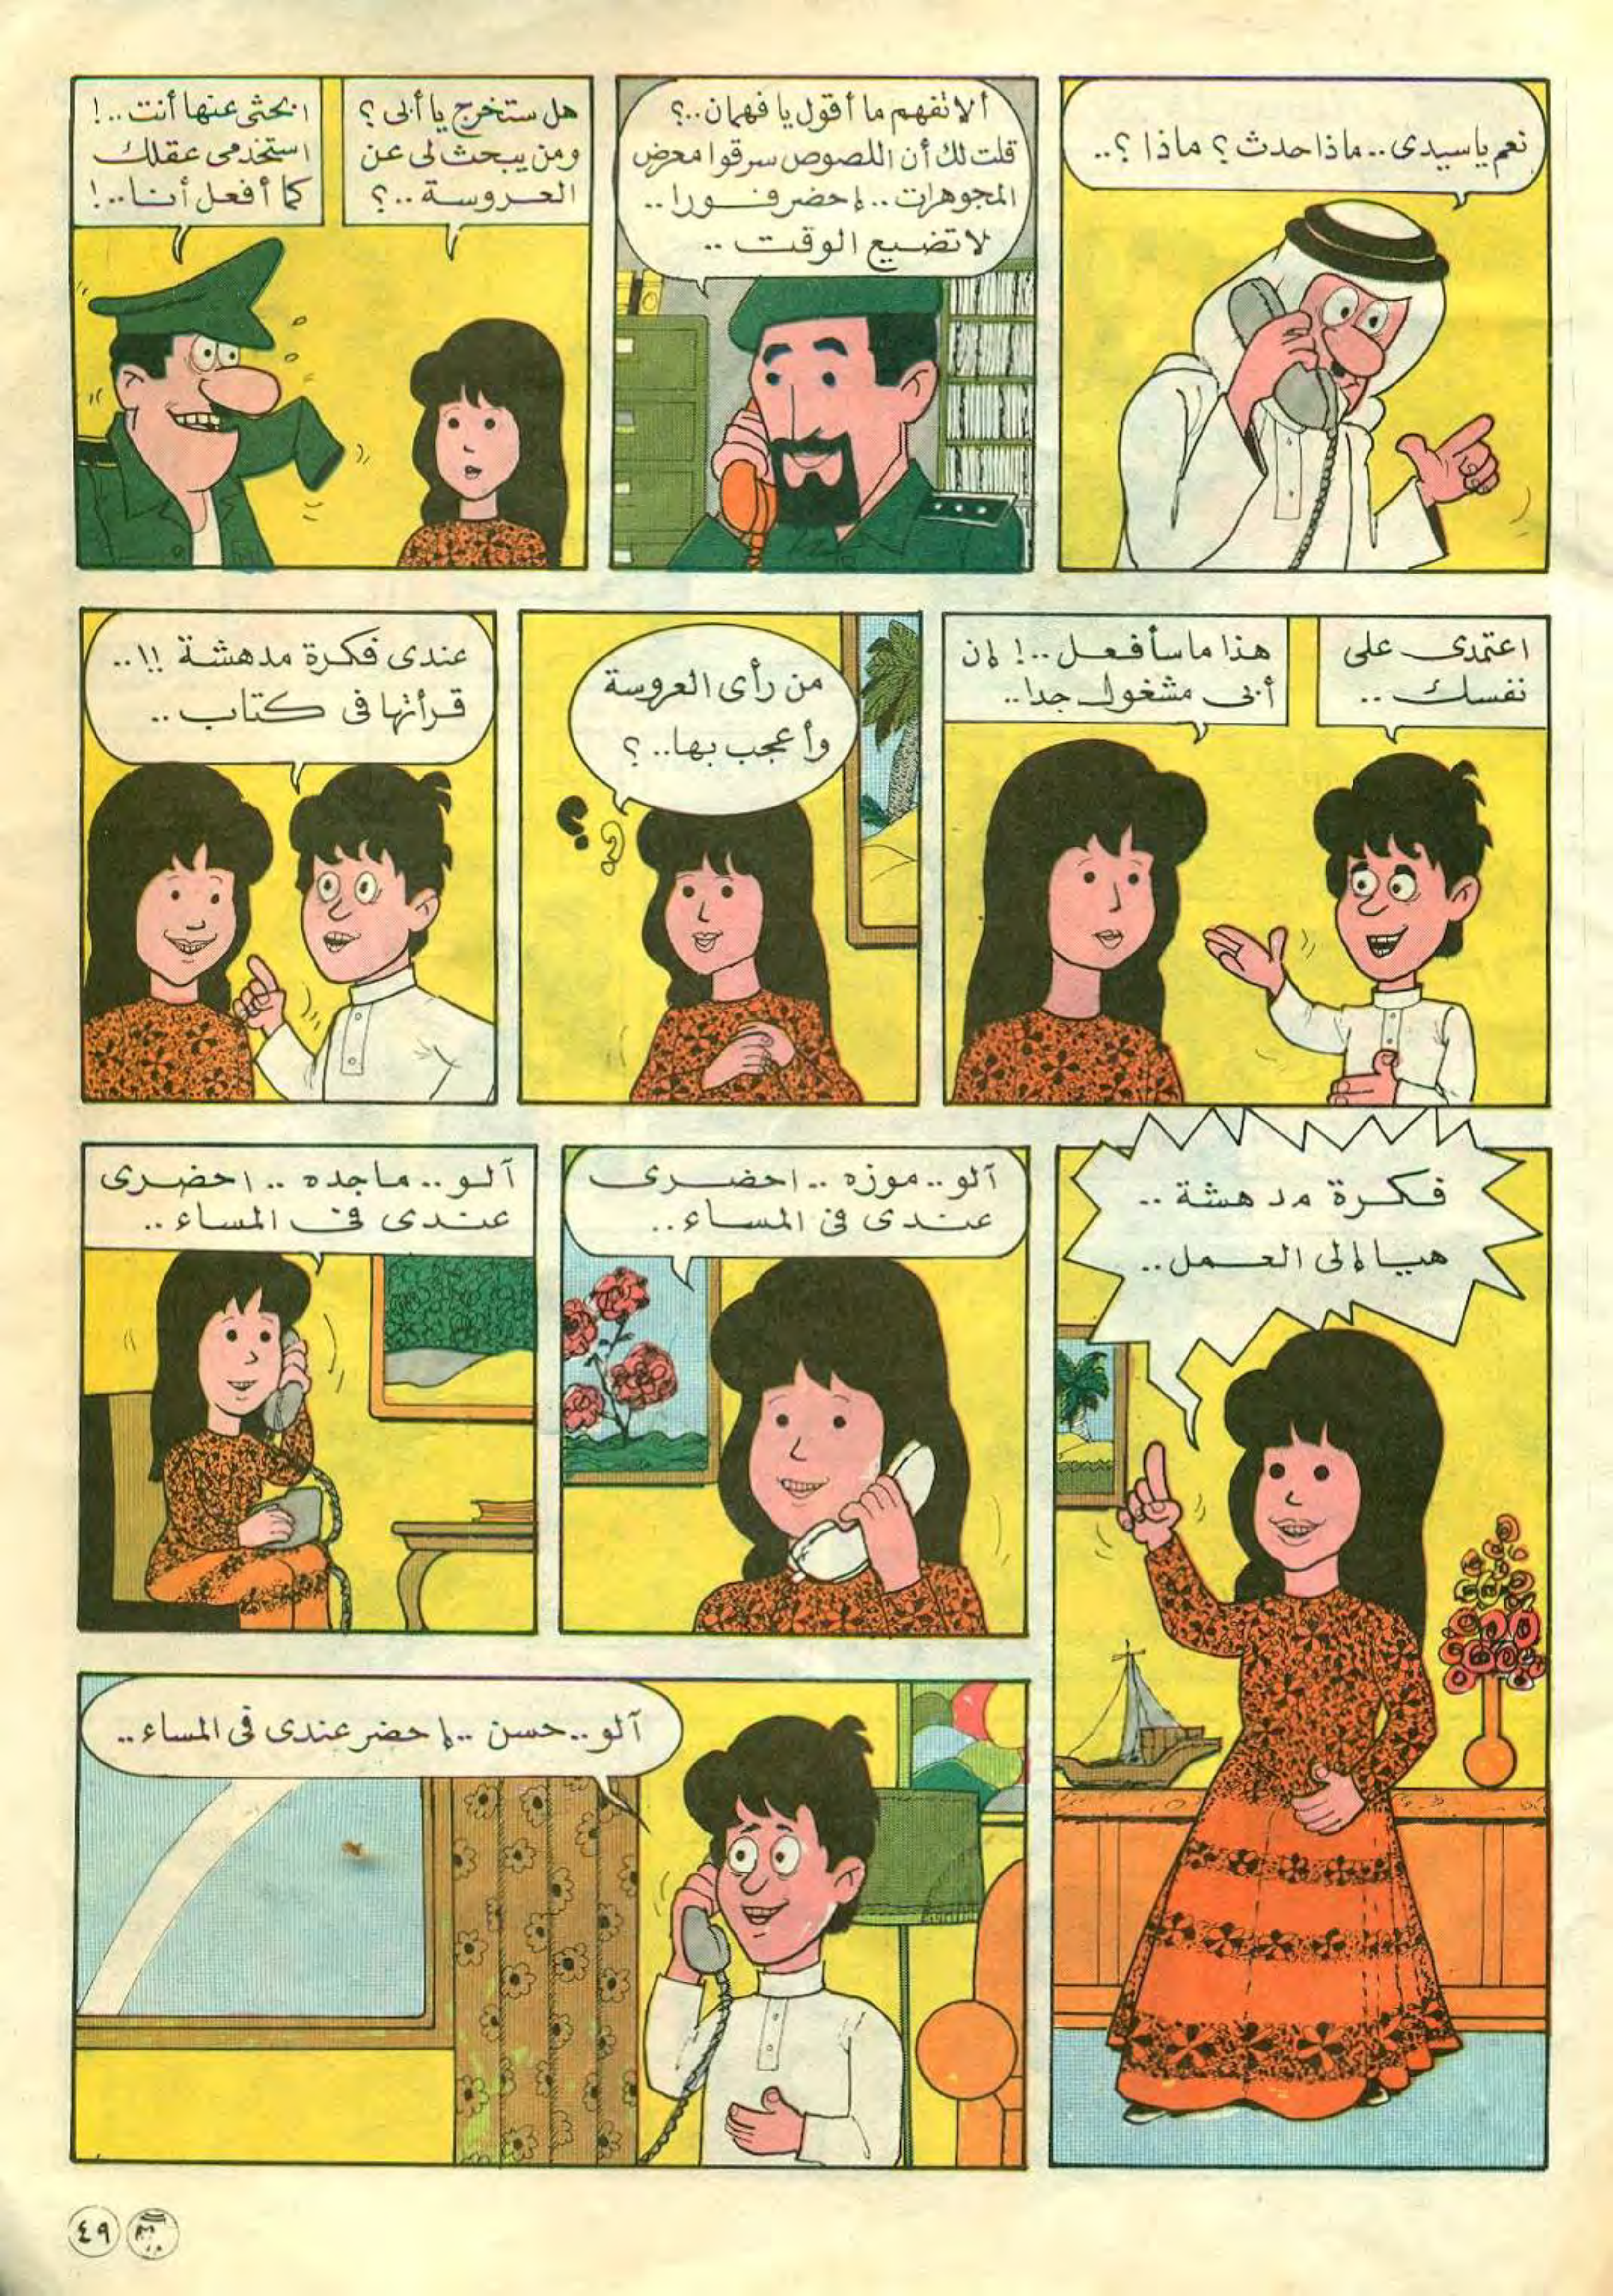 نعم ياسيدى.. ماذا حدث ؟ ماذا ؟..
ألا تفهم ما أقول يا فهمان..؟
قلت لك أن اللصوص سرقوا معرض
المجوهرات.. إحضر فورا..
لا تضيع الوقت..
هل ستخرج يا أبى ؟
ومن يبحث لى عن
العروسة..؟
ابحثى عنها أنت..!
استخدمى عقلك
كما أفعل أنا..!
اعتمدى على
نفسك..
هذا ما سأفعل..! إن
أبى مشغول جدا..
من رأى العروسة
وأعجب بها..؟
عندى فكرة مدهشة !!..
قرأتها فى كتاب..
فكرة مدهشة..
هيا إلى العمل..
آلو.. موزه.. احضرى
عندى فى المساء..
آلو.. ماجده.. احضرى
عندى فى المساء..
آلو.. حسن.. إحضر عندى فى المساء..
٤٩